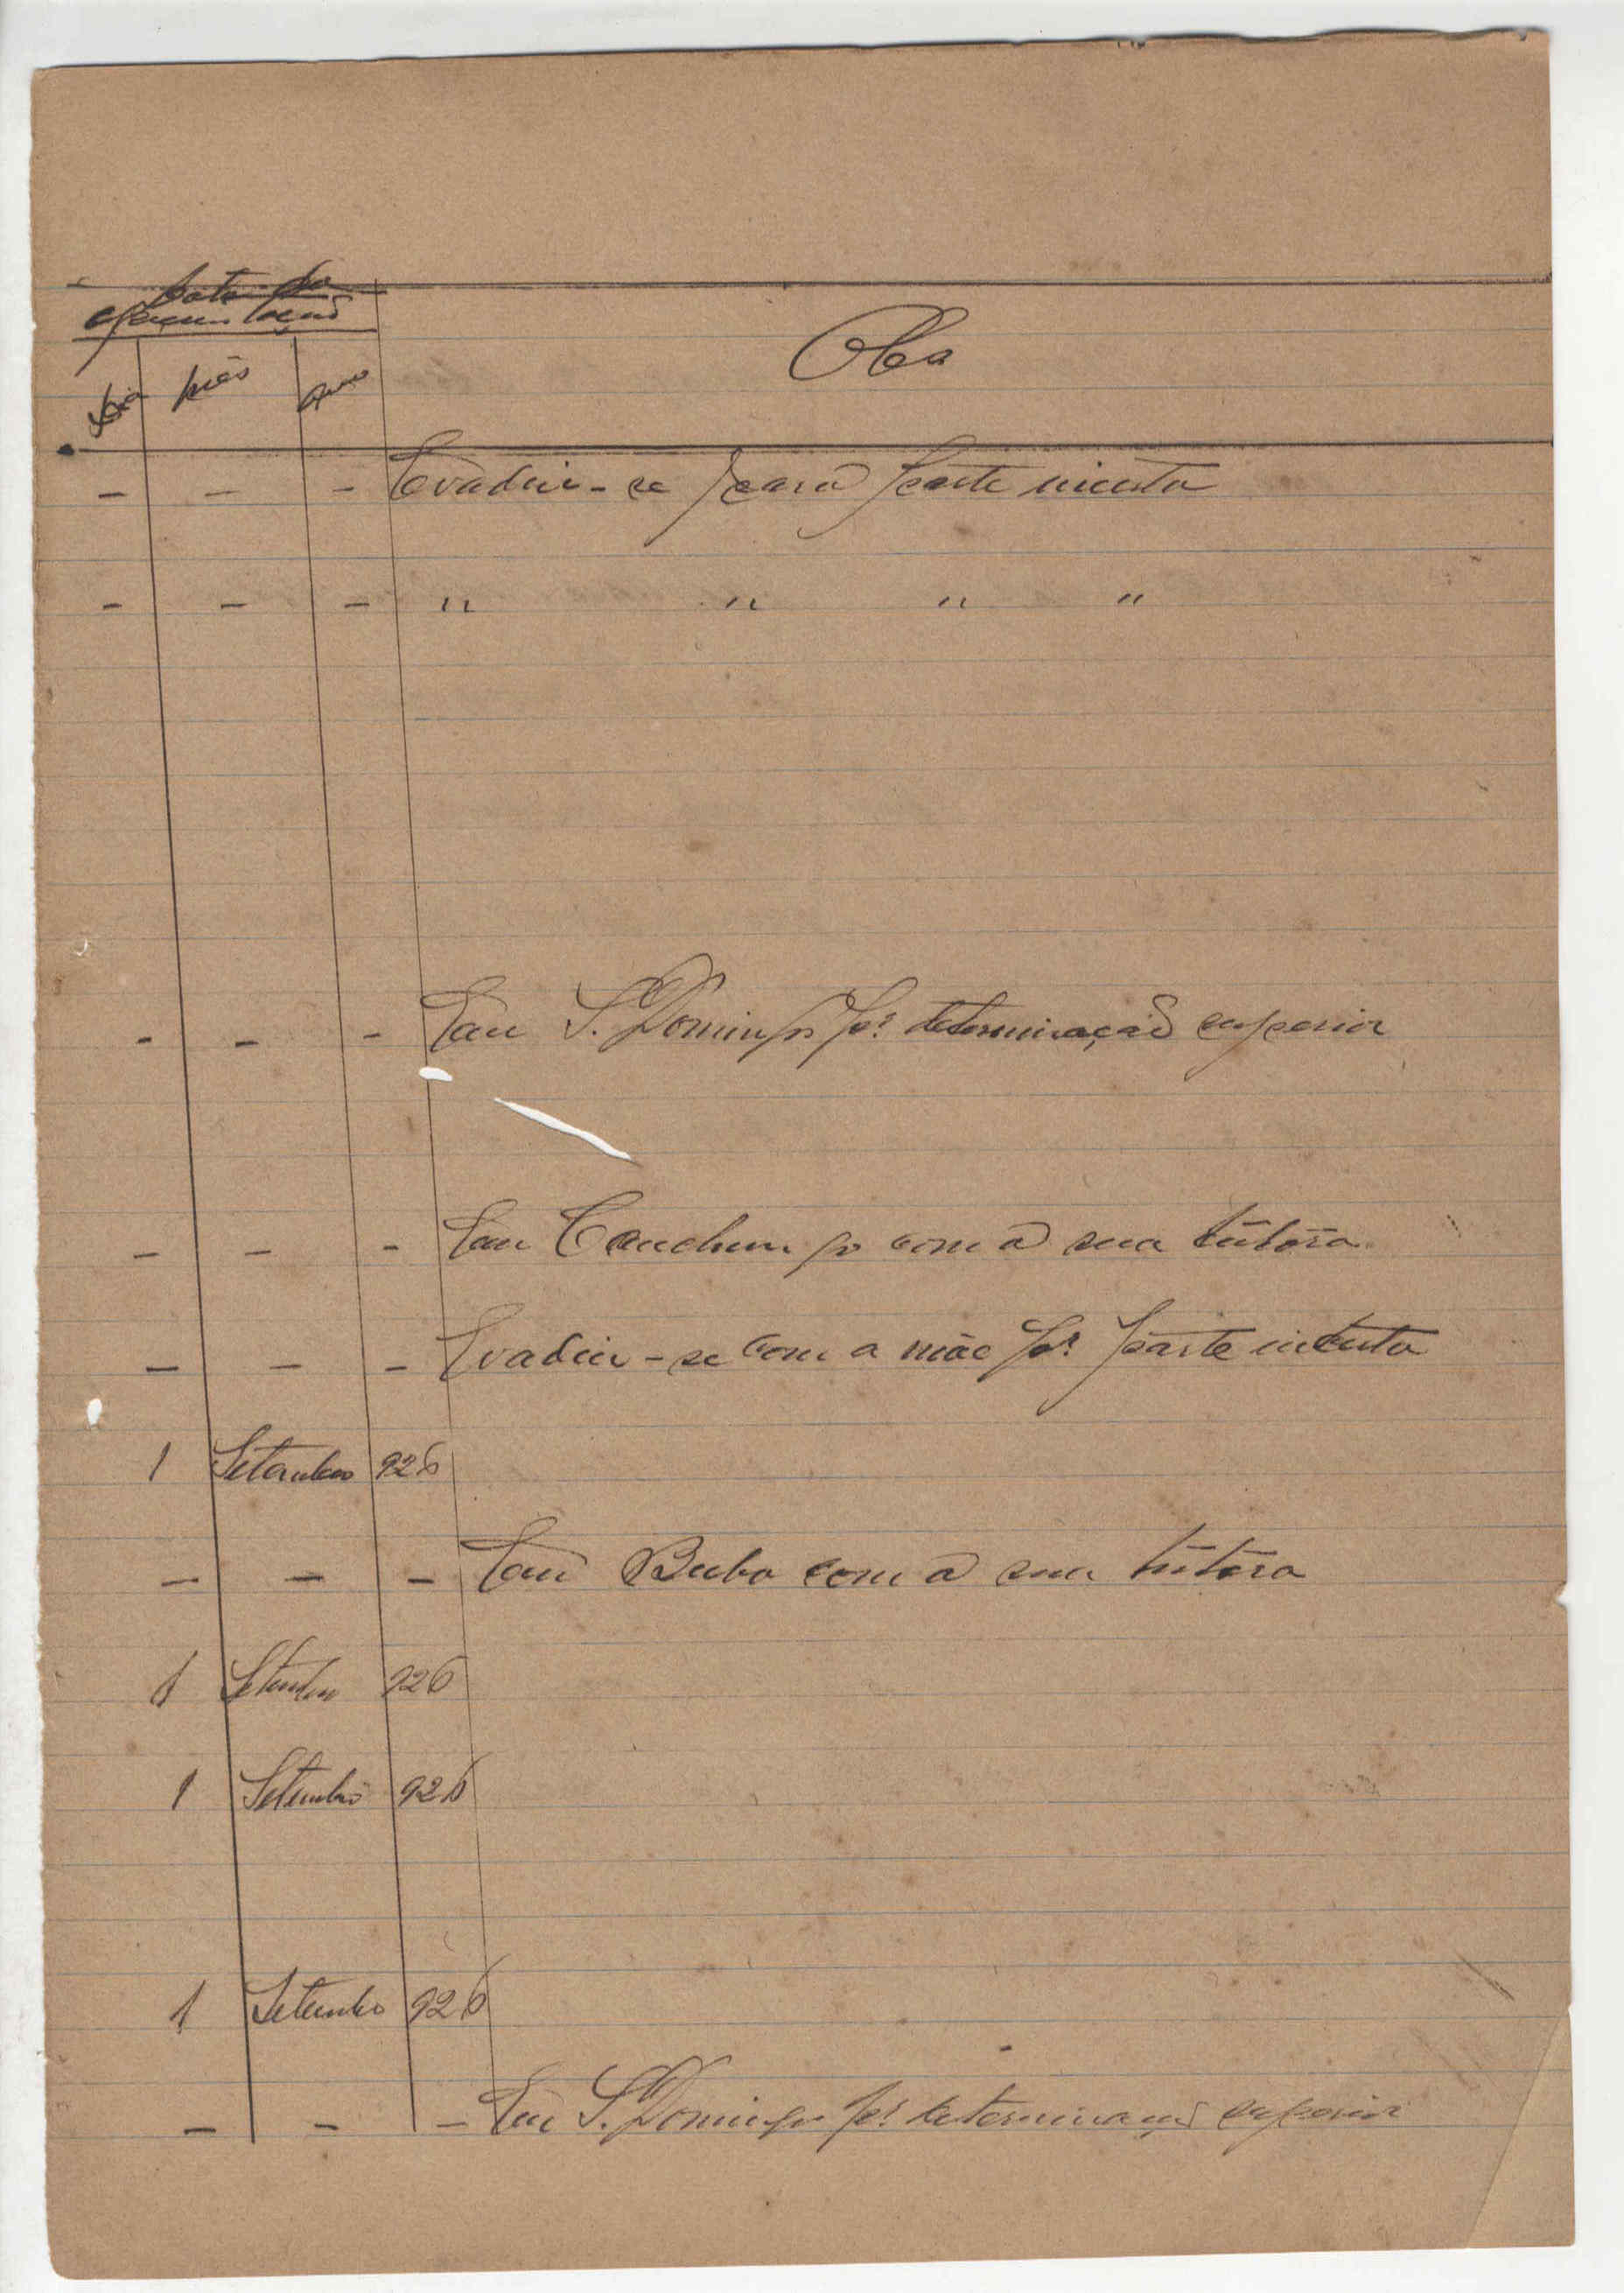 Data da
apresentação
Dia Mês Ano Obs
- - - Evadiu-se para parte incerta
- - - " " " "
- - - Em S. Domingos por determinação superior
- - - Em Canchungo com a sua tutora
- - - Evadiu-se com a mãe pª parte incerta
1 Setembro 926
- - - Em Buba com a sua tutora
1 Setembro 926
1 Setembro 926
1 Setembro 926
- - - Em S. Domingos por determinação superior